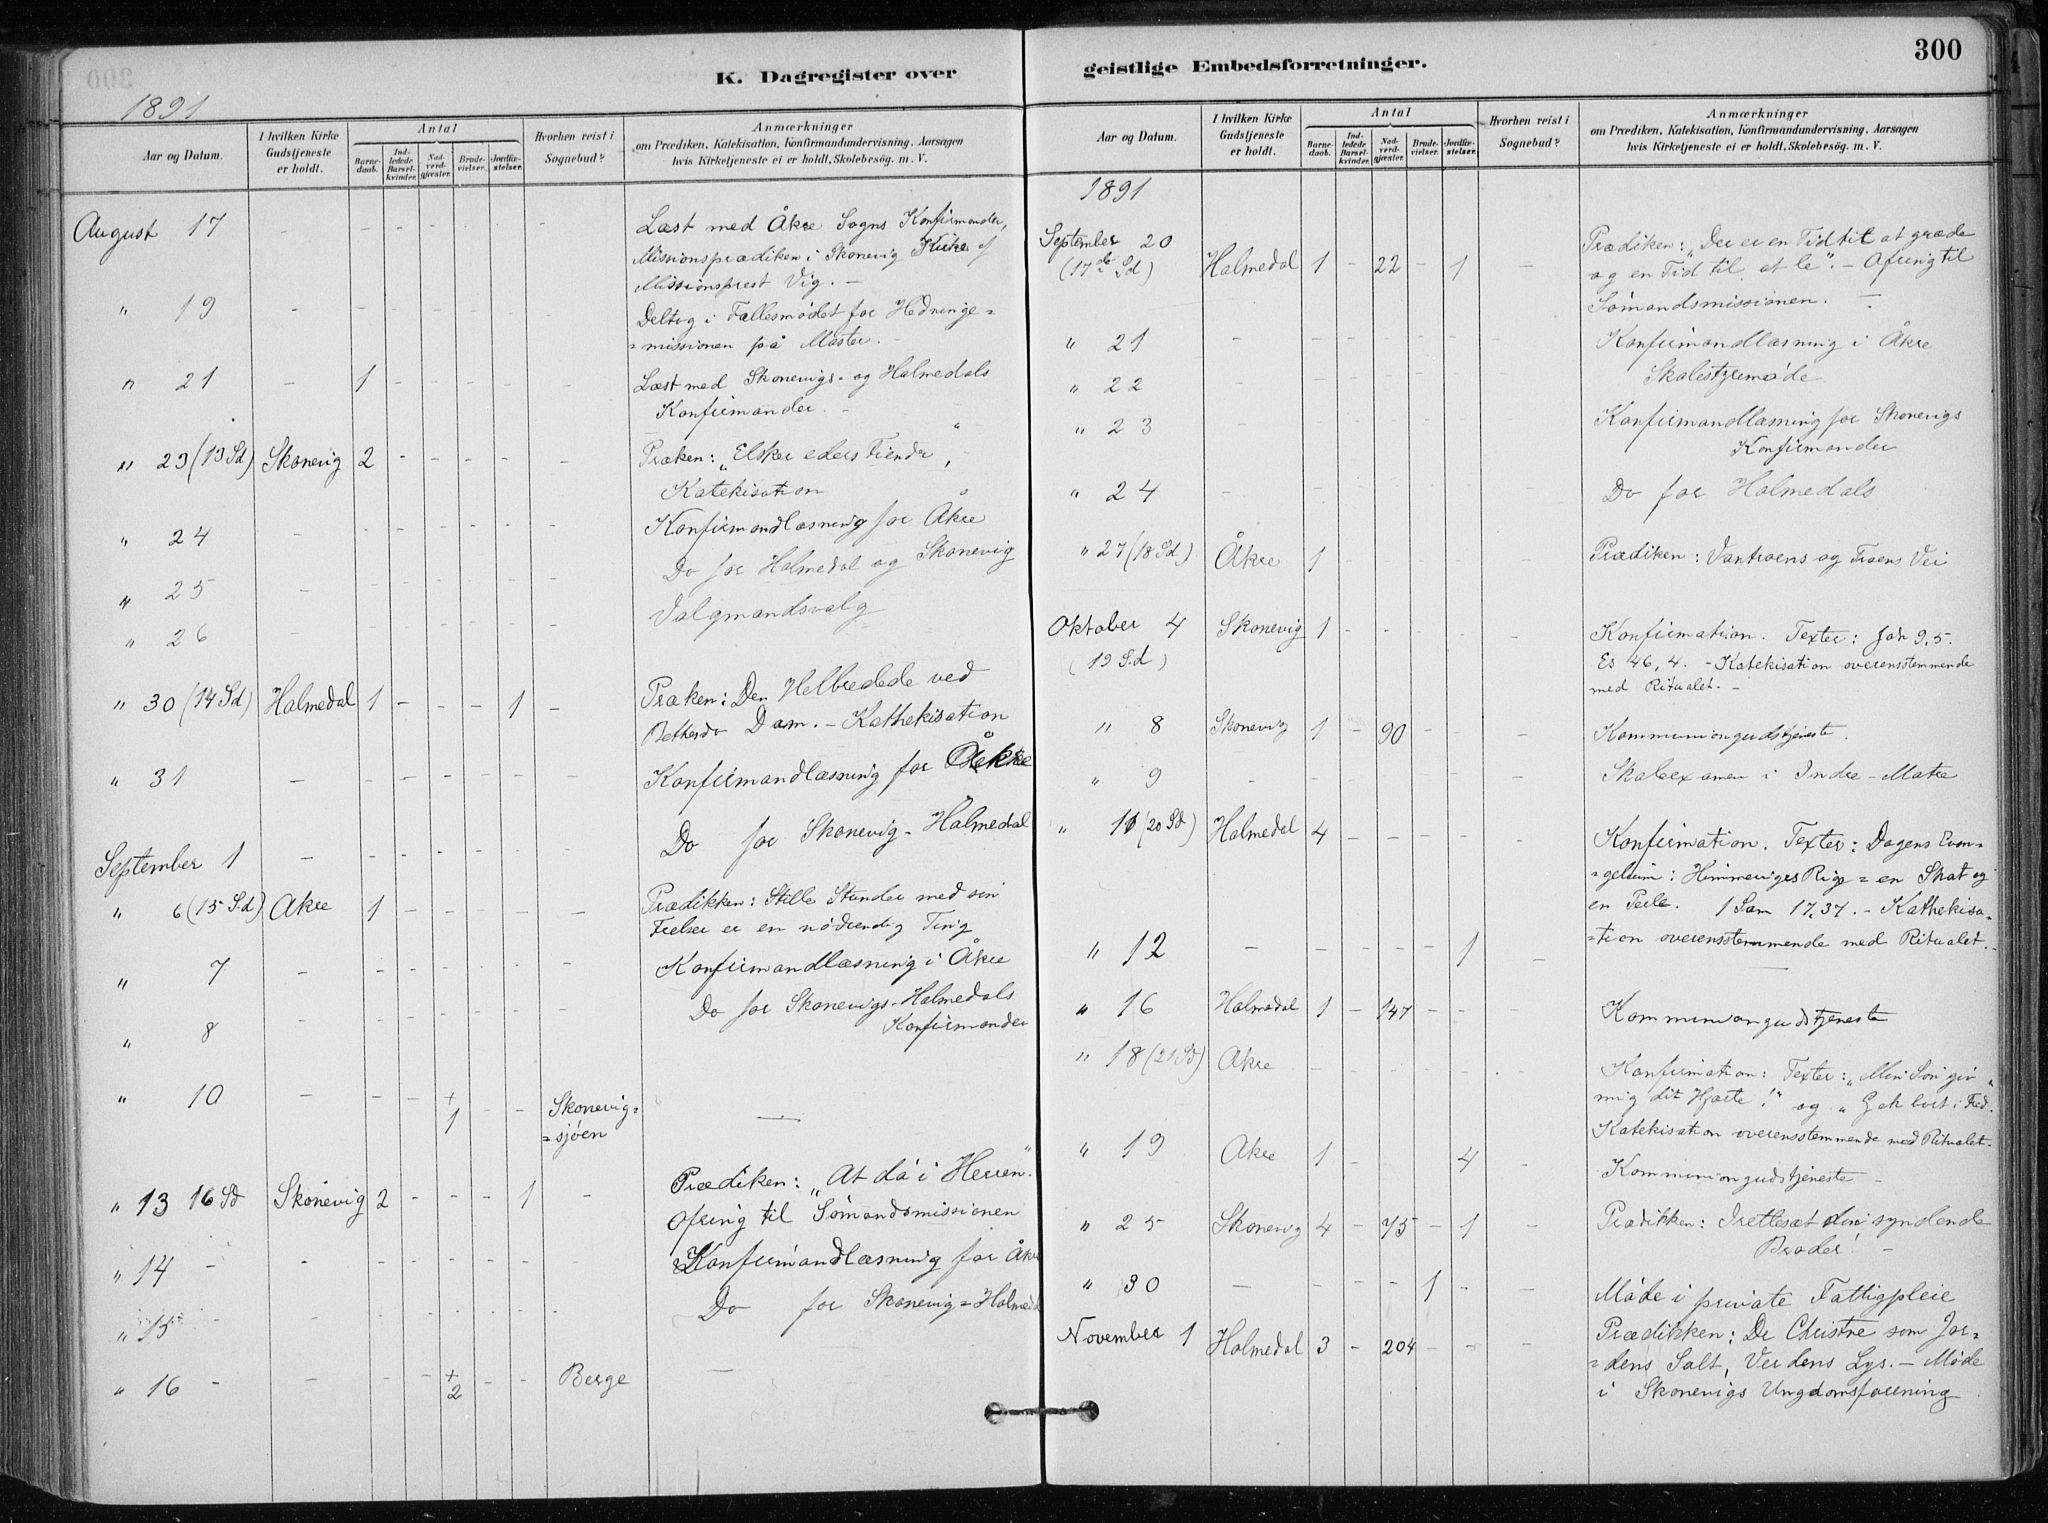 K. Dagregister over
1891
Aar og Datum. I hvilken Kirke Gudstjeneste er holdt. Antal Barnedaab. Indledede Barselkvinder. Nadverdgjæster. Brudevielser. Jordfæstelser. Hvorhen reist i Sognebud? Anmærkninger om Prædiken, Katekisation, Konfirmandundervisning, Aarsagen hvis Kirketjeneste ei er holdt, Skolebesøg. m. V.
August 17 - - - - - - - Læst med Åkre Sogns Konfirmander,
Missionsprædiken i Skonevig Kirke af
Missionsprest Vig. -
" 19 - - - - - - - Deltog i Fællesmødet for Hedninge=
=missionen på Moster. -
" 21 - 1 - - - - - Læst med Skonevigs- og Halmedals
Konfirmander. -
" 23 (13 Sd) Skonevig 2 - - - - - Præken: "Elsker eders Fiender",
Katekisation
" 24 - - - - - - - Konfirmandlæsning for Åkre
" 25 - - - - - - - Do for Halmedal og Skonevig
" 26 - - - - - - - Valgmandsvalg
" 30 (14 Sd) Halmedal 1 - - - 1 - Præken: Den Helbredede ved
Bethesda Dam. - Kathekisation
" 31 - - - - - - - Konfirmandlæsning for Åkre
September 1 - - - - - - - Do for Skonevig - Halmedal
" 6 (15 Sd) Akre 1 - - - - - Prædikken: Stille Stunder med sin
Frelser er en nødvendig Ting
" 7 - - - - - - - Konfirmandlæsning i Åkre
" 8 - - - - - - - Do for Skonevigs-Halmedals
Konfirmander
" 10 - - - + 1 - - Skonevig=
=sjøen -
" 13 16 Sd Skonevig 2 - - - 1 - Prædiken: "At dø i Herren".
Ofring til Sømandsmissionen
" 14 - - - - - - - Konfirmandlæsning for Åkre
" 15 - - - - - - - Do for Skonevig=Halmedal
" 16 - - - - + 2 - - Berge -
geistlige Embedsforretninger.
300
Aar og Datum. I hvilken Kirke Gudstjeneste er holdt. Antal Barnedaab. Indledede Barselkvinder. Nadverdgjæster. Brudevielser. Jordfæstelser. Hvorhen reist i Sognebud? Anmærkninger om Prædiken, Katekisation, Konfirmandundervisning, Aarsagen hvis Kirketjeneste ei er holdt, Skolebesøg. m. V.
1891
September 20 (17de Sd) Halmedal 1 - 22 - 1 - Prædiken: "Der er en Tid til at græde
og en Tid til at le". - Ofring til
Sømandsmissionen. -
" 21 - - - - - - - Konfirmandlæsning i Åkre
" 22 - - - - - - - Skolestyremøde
" 23 - - - - - - - Konfirmandlæsning for Skonevigs
Konfirmander
" 24 - - - - - - - Do for Halmedals
" 27 (18 Sd) Åkre 1 - - - - - Prædiken: Vantroens og Troens Vei
Oktober 4 (19 Sd) Skonevig 1 - - - - - Konfirmation. Texter: Joh 9,5.
Es 46,4. - Katekisation overensstemmende
med Ritualet. -
" 8 Skonevig 1 - 90 - - - Kommuniongudstjeneste.
" 9 - - - - - - - Skoleexamen i Indre-Matre
" 11 (20 Sd) Halmedal 4 - - - - - Konfirmation. Texter: Dagens Evan=
=gelium: Himmeriges Rige = en Skat og
en Perle. 1 Sam 17,37. - Kathekisa=
=tion overensstemmende med Ritualet. -
" 12 - - - - - 1 - -
" 16 Halmedal 1 - 147 - - - Kommuniongudstjeneste
" 18 (21 Sd) Akre - - - - - - Konfirmation: Texter: "Min Søn giv
mig dit Hjærte!" og "Gak bort i Fred."
Katekisation overensstemmende med Ritualet. -
" 19 Akre 1 - - - 4 - Kommuniongudstjeneste -
" 25 Skonevig 4 - 75 - 1 - Prædikken: Iretlesæt din syndende
Broder! -
" 30 - - - - 1 - - Møde i private Fattigpleie
November 1 Halmedal 3 - 204 - - - Prædikken: De Christne som Jor=
=dens Salt, Verdens Lys. - Møde
i Skonevigs Ungdomsforening